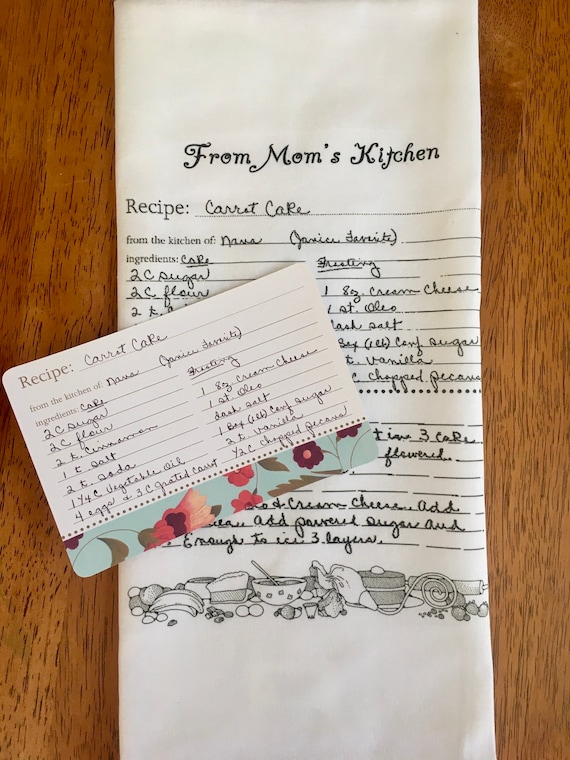 From Mom's Kitchen
Recipe: Carrot Cake
from the kitchen of: Nana (Janice Favorite)
ingredients: Cake Frosting
2 C sugar 1 8oz. Cream Cheese
2 C flour 1 St. Oleo
2 t. dash salt
Box (1lb) Conf Sugar
t. Vanilla
C chopped pecans
t in 3 cake
flowered.
& Cream Cheese. Add
Add powered sugar and
Enough to ice 3 layers.
Recipe: Carrot Cake
from the kitchen of: Nana (Janice Favorite)
ingredients: Cake Frosting
2C sugar 1 8oz Cream Cheese
2C flour 1 St. Oleo
2 t. Cinnamon dash salt
1 t salt 1 Box (1lb) Conf Sugar
2 t. soda 2 t. Vanilla
1 1/4 C Vegetable Oil 1/2 C chopped pecans
4 eggs & 3 C grated Carrot